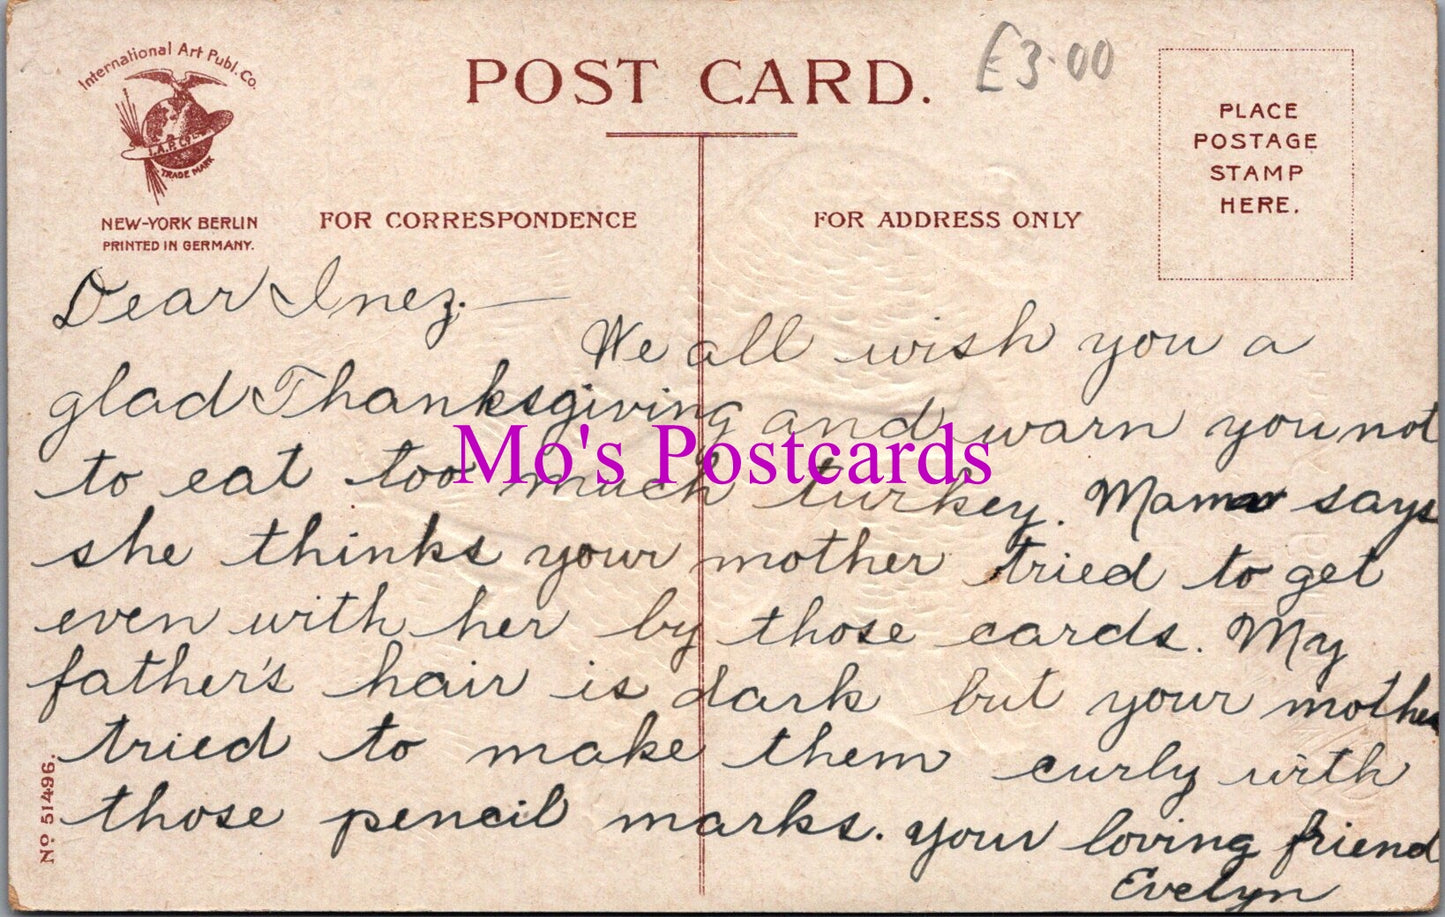 International Art Publ. Co.
I.A.P. Co.
TRADE MARK
NEW-YORK BERLIN
PRINTED IN GERMANY.
POST CARD.
£3.00
PLACE
POSTAGE
STAMP
HERE.
FOR CORRESPONDENCE
FOR ADDRESS ONLY
Dear Inez. —
We all wish you a
glad Thanksgiving and warn you not
to eat too much turkey. Mama says
she thinks your mother tried to get
even with her by those cards. My
father's hair is dark but your mother
tried to make them curly with
those pencil marks. Your loving friend
Evelyn
Nº 51496.
Mo's Postcards